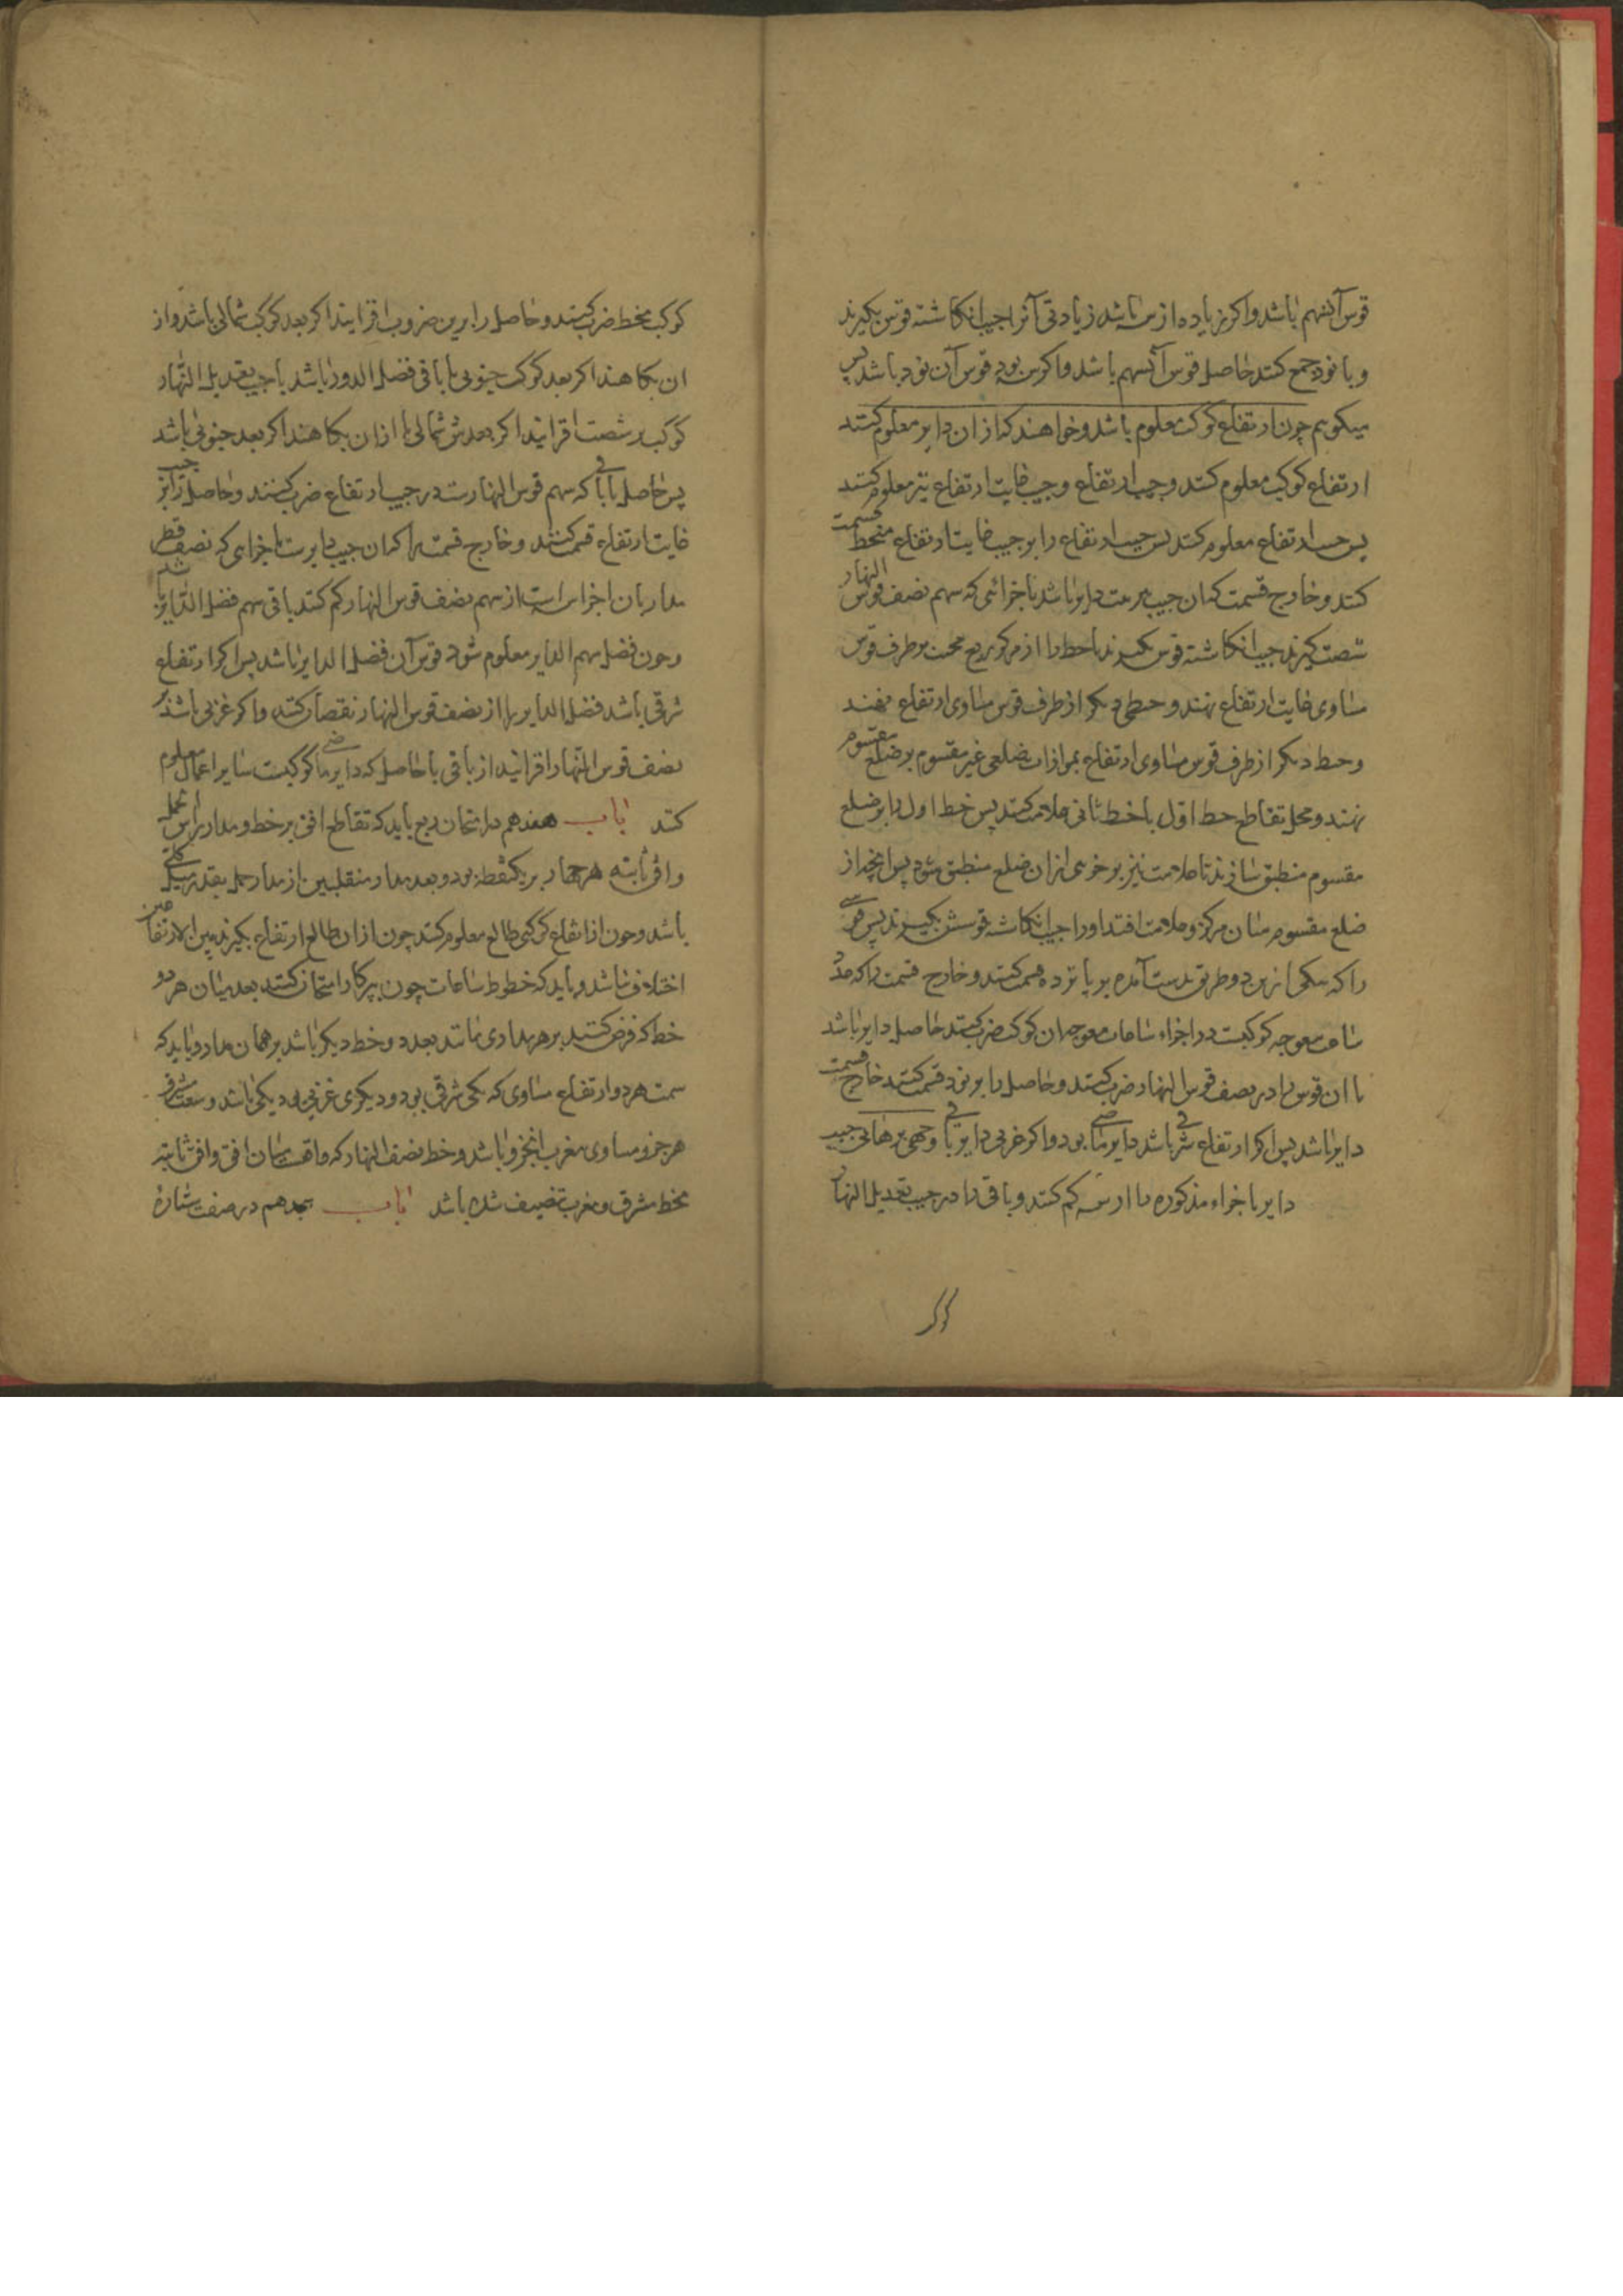 قوس آن سهم باشد و اکر زیاده از س باشد زیادتی آنرا جیب انکاشته قوس بکیرند
و با نود جمع کنند حاصل قوس آن سهم باشد و اکر س بود قوس آن نود باشد پس
میکویم چون ارتفاع کوکب معلوم باشد و خواهند که از ان دایر معلوم کنند
ارتفاع کوکب معلوم کنند و جیب ارتفاع و جیب غایت ارتفاع نیز معلوم کنند
پس جیب ارتفاع معلوم کنند پس جیب ارتفاع را بر جیب غایت ارتفاع منحط قسمت
کنند و خارج قسمت کمان جیب دایر باشد باجزائی که سهم نصف قوس النهار
شصت کیرند جیب انکاشته قوس بکیرند یا خط را از مرکز ربع مجیب بر طرف قوس
مساوی غایت ارتفاع نهند و خطی دیکر از طرف قوس مساوی ارتفاع نهند
و خط دیکر از طرف قوس مساوی ارتفاع بموازات ضلعی غیر مقسوم بر ضلع مقسوم
نهند و محل تقاطع خط اول با خط ثانی علامت کنند پس خط اول را بر ضلع
مقسوم منطبق سازند تا علامت نیز بر خری از ان ضلع منطبق شود پس انچه از
ضلع مقسوم میان مرکز و علامت افتد او را جیب انکاشته قوسش بکیرند پس
را که بیکی ازین دو طریق بدست آمده بر پانزده قسمت کنند و خارج قسمت را که عدد
ساعت معوجه کوکبست در اجزاء ساعات معوجه ان کوکب ضرب کنند حاصل دایر باشد
یا ان قوس را در نصف قوس النهار ضرب کنند و حاصل را بر نود قسمت کنند خارج قسمت
دایر باشد پس اکر ارتفاع شرقی باشد دایر ماضی بود و اکر غربی دایر باقی وجهی برهانی جیب
دایر باجزاء مذکوره را از س کم کنند و باقی را در جیب تعدیل النهار
کوکب منحط ضرب کنند و حاصل را برین مضروب افزایند اکر بعد کوکب شمالی باشد و از
ان بکاهند اکر بعد کوکب جنوبی یا باقی فضل الدور باشد یا جیب تعدیل النهار
کوکب بر شصت افزایند اکر بعدش شمالی یا ازان بکاهند اکر بعد جنوبی باشد
پس حاصل یا باقی که سهم قوس النهارست در جیب ارتفاع ضرب کنند و حاصل را بر جیب
غایت ارتفاع قسمت کنند و خارج قسمت را کمان جیب دایرست باجزایی که نصف قطر
مدار بان اجزا س است از سهم نصف قوس النهار کم کنند باقی سهم فضل الدایر
و چون فضل سهم الدایر معلوم شود قوس آن فضل الدایر باشد پس اکر ارتفاع
شرقی باشد فضل الدایر را از نصف قوس النهار نقصان کنند و اکر غربی باشد بر
نصف قوس النهار افزایند از باقی یا حاصل که دایر ماضی کوکبست سایر اعمال معلوم
کنند باب هفدهم در امتحان ربع باید که تقاطع افق بر خط و مدار راس حمل
و افق ثابته هر چهار بر یک نقطه بود و بعد مدار منقلبین از مدار حمل بقدر میل کلی
باشد و چون از ارتفاع کوکبی طالع معلوم کنند چون از ان طالع ارتفاع بکیرند بین الارتفاعین
اختلاف نباشد و باید که خطوط ساعات چون بپرکار امتحان کنند بعد میان هر دو
خط که فرض کنند بر هر مداری مانند بعد دو خط دیکر باشد بر همان مدار و باید که
سمت هر دو ارتفاع مساوی که یکی شرقی بود و دیکری غربی بود یکی باشد و سعت مشرق
هر جزو مساوی مغرب آنجزو باشد و خط نصف النهار که مابین افق و افق ثابته
بخط مشرق و مغرب تنصیف شده باشد باب هجدهم در صفت ستاره